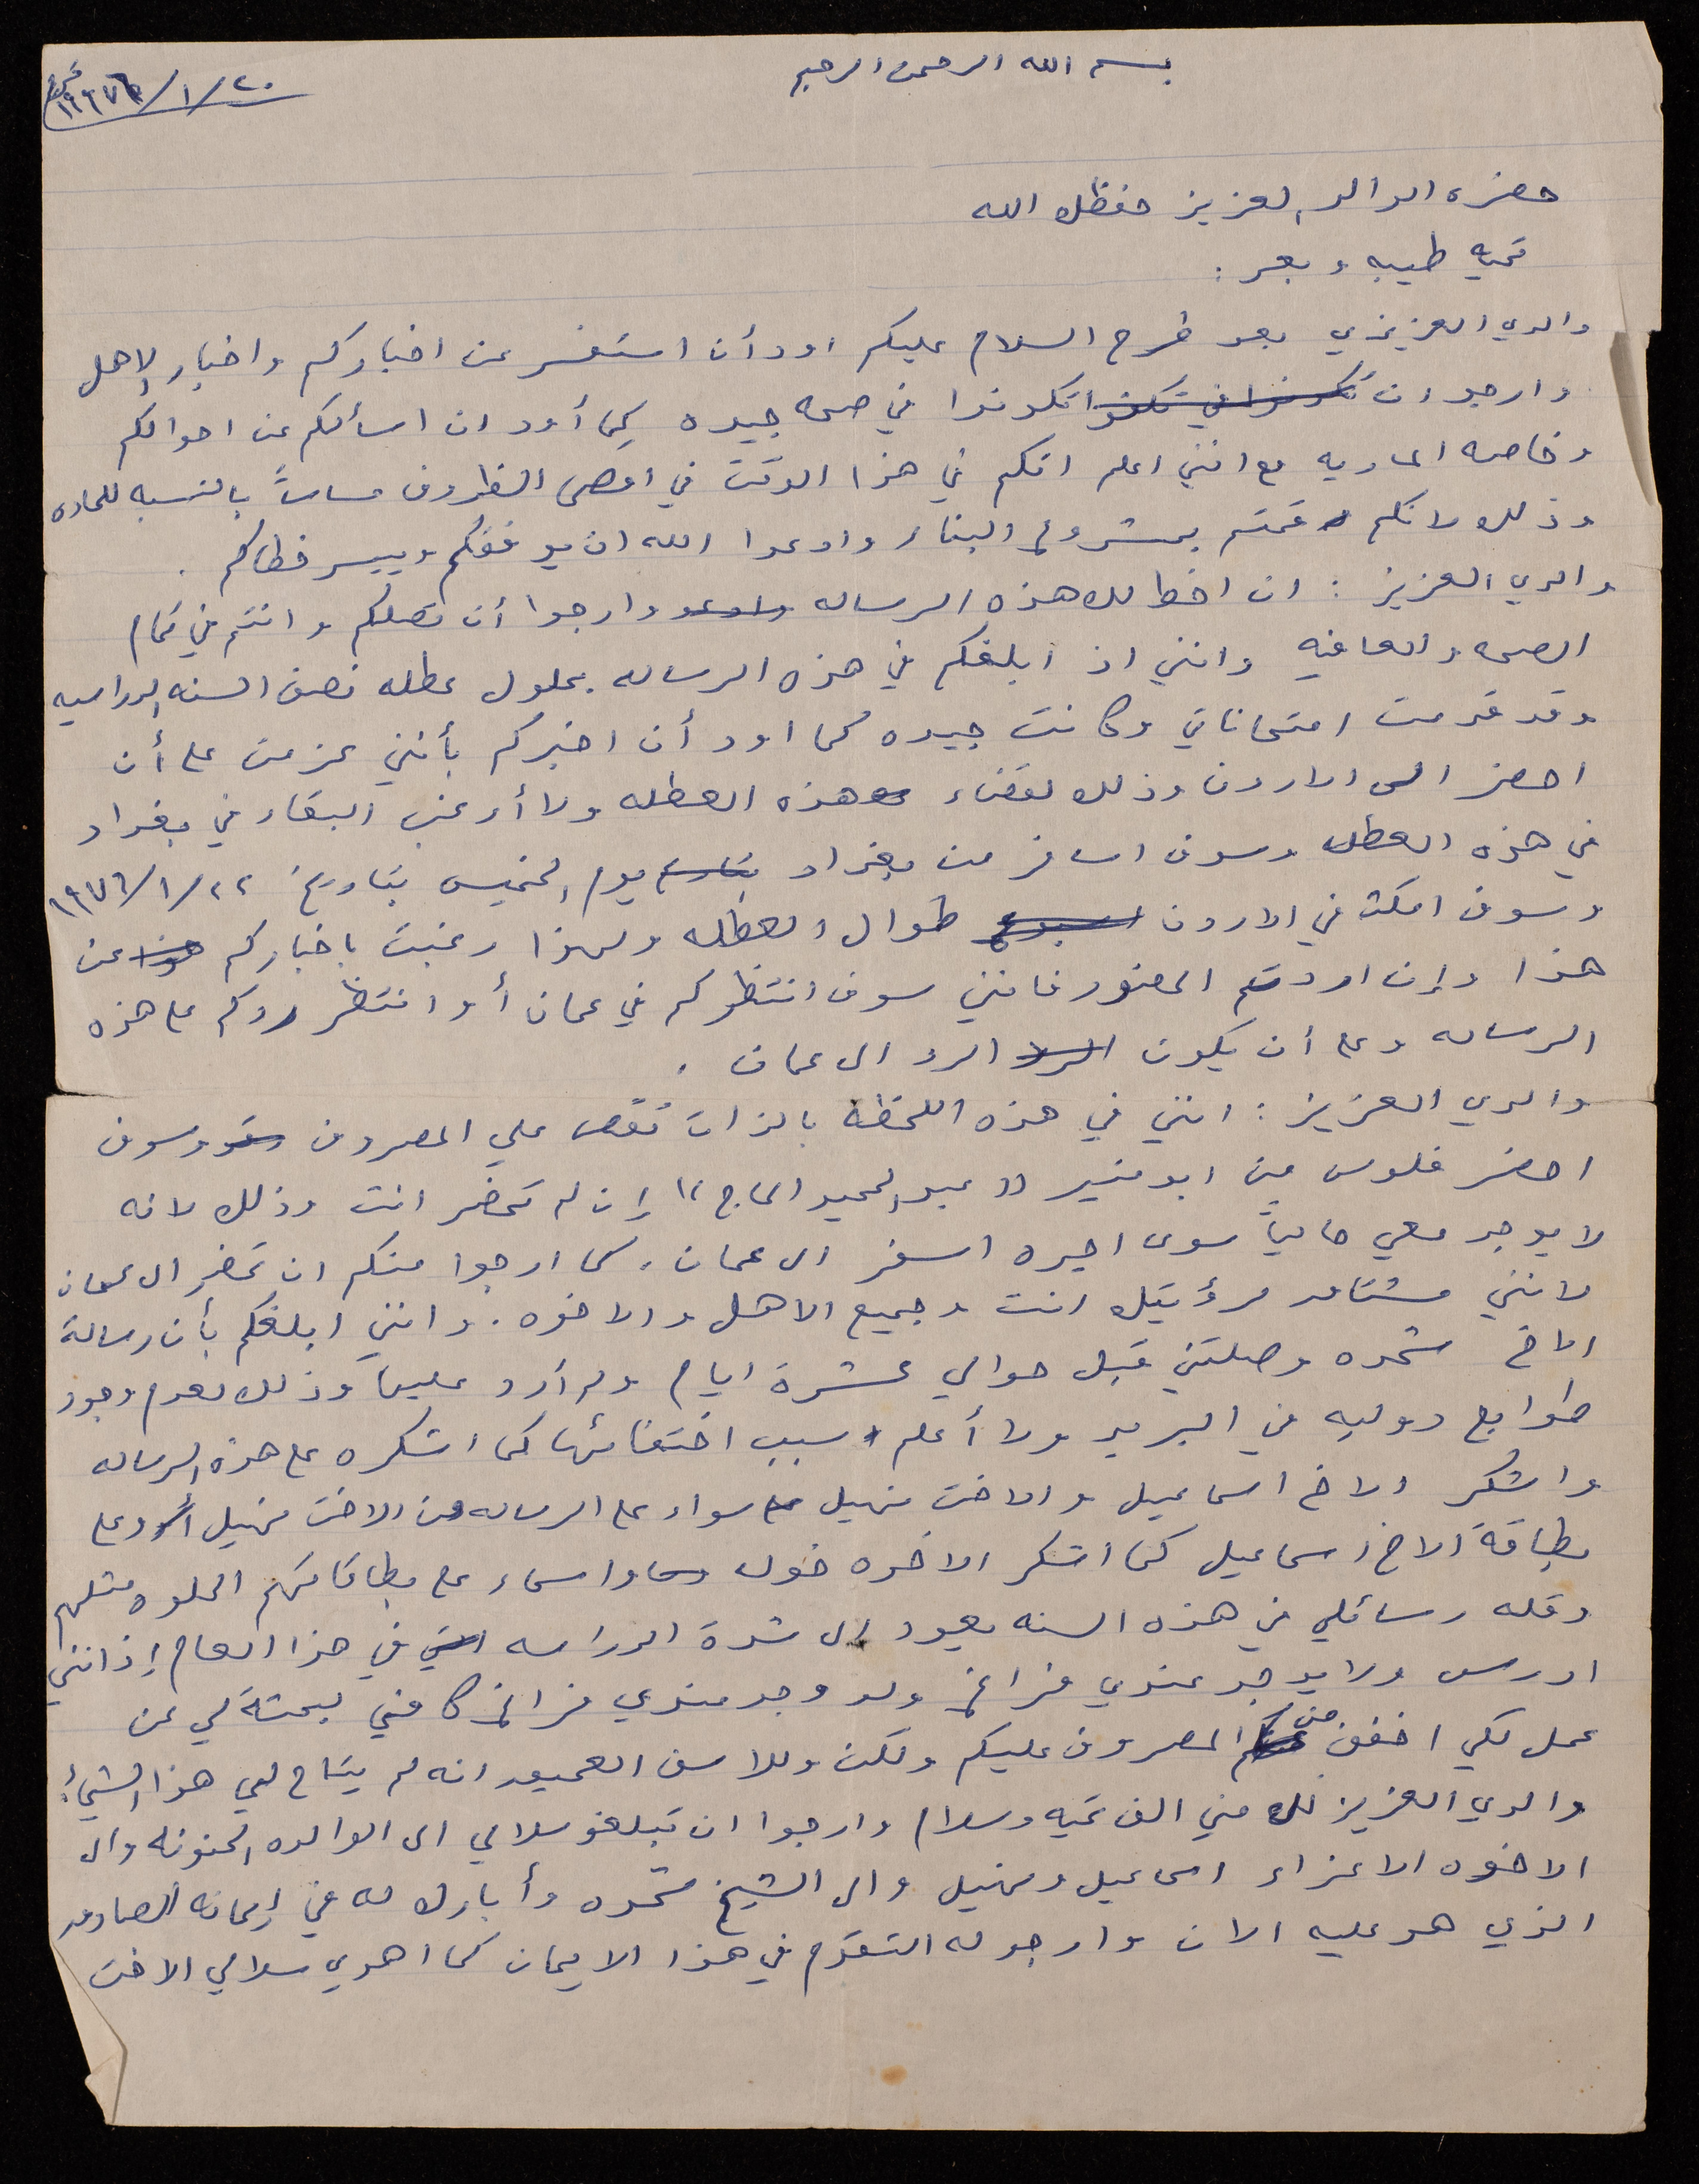 بسم الله الرحمن الرحيم
٢٠/١/١٩٧٦
حضره الوالد العزيز حفظك الله
تحيه طيبه وبعد :
والدي العزيزي بعد طرح السلام عليكم اود أن استفسر عن اخباركم واخبار الاهل
وارجو ان تكونوا في صحه جيده كما أود ان اسألكم عن احوالكم
وخاصه الماديه مع انني اعلم انكم في هذا الوقت في اقصى الظروف بالنسبه للماده
وذلك لانكم قمتم بمشروع البناء وادعوا الله ان يوفقكم وييسر خطاكم .
والدي العزيز : ان اخط لك هذه الرساله وارجوا أن تصلكم وانتم في تمام
الصحه والعافيه وانني اذ ابلغكم في هذه الرساله بحلول عطله نصف السنه الدراسيه
وقد قدمت امتحاناتي وكانت جيده كما اود أن اخبركم بأنني عزمت على أن
احضر الى الاردن وذلك لقضاء هذه العطله ولا أرغب البقاء في بغداد
في هذه العطله وسوف اسافر من بغداد يوم الخميس بتاريخ ٢٢/١/١٩٧٦
وسوف امكث في الاردن طوال العطله ولهذا رغبت باخباركم عن
هذا وإن اردتم الحضور فانني سوف انتظركم في عمان أو انتظر ردكم على هذه
الرساله وعلى أن يكون الرد الى عمان .
والدي العزيز : انني في هذه اللحظة بالذات نقص علي المصروف وسوف
احضر فلوس من ابو منير (( عبد الحميد الحاج )) إن لم تحضر انت وذلك لانه
لا يوجد معي حالياً سوى اجره السفر الى عمان . كما ارجوا منكم ان تحضر الى عمان
لانني مشتاق لرؤيتك انت وجميع الاهل والاخوه . وانني ابلغكم بأن رسالة
الاخ شحده وصلتني قبل حوالي عشرة ايام ولم أرد عليها وذلك لعدم وجود
طوابع دوليه في البريد ولا أعلم سبب اختفائها كما اشكره على هذه الرساله
واشكر الاخ اسماعيل والاخت نهيل سواء على الرساله من الاخت نهيل أو على
بطاقة الاخ اسماعيل كما اشكر الاخوه خوله واسماء على بطاقاتهم الحلوه مثلهم
وقله رسائلي في هذه السنه يعود الى شدة الدراسه في هذا العام إذ انني
ادرس ولا يوجد عندي فراغ ولو وجد عندي فراغ كافي لبحثة لي عن
عمل لكي اخفف من المصروف عليكم ولكن وللاسف العميق انه لم يتاح لي هذا الشيئ .
والدي العزيز لك مني الف تحيه وسلام وارجوا ان تبلغو سلامي الى الوالده الحنونه والى
الاخوه الاعزاء اسماعيل ونهيل والى الشيخ شحده وأبارك له في إيمانه الصادق
الذي هو عليه الان وارجو له التقدم في هذا الايمان كما اهدي سلامي الاخت